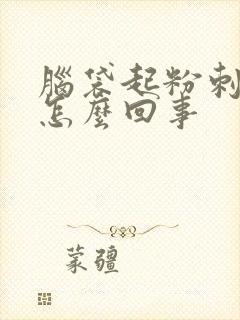 腦袋起粉刺
怎麼回事
蒙疆